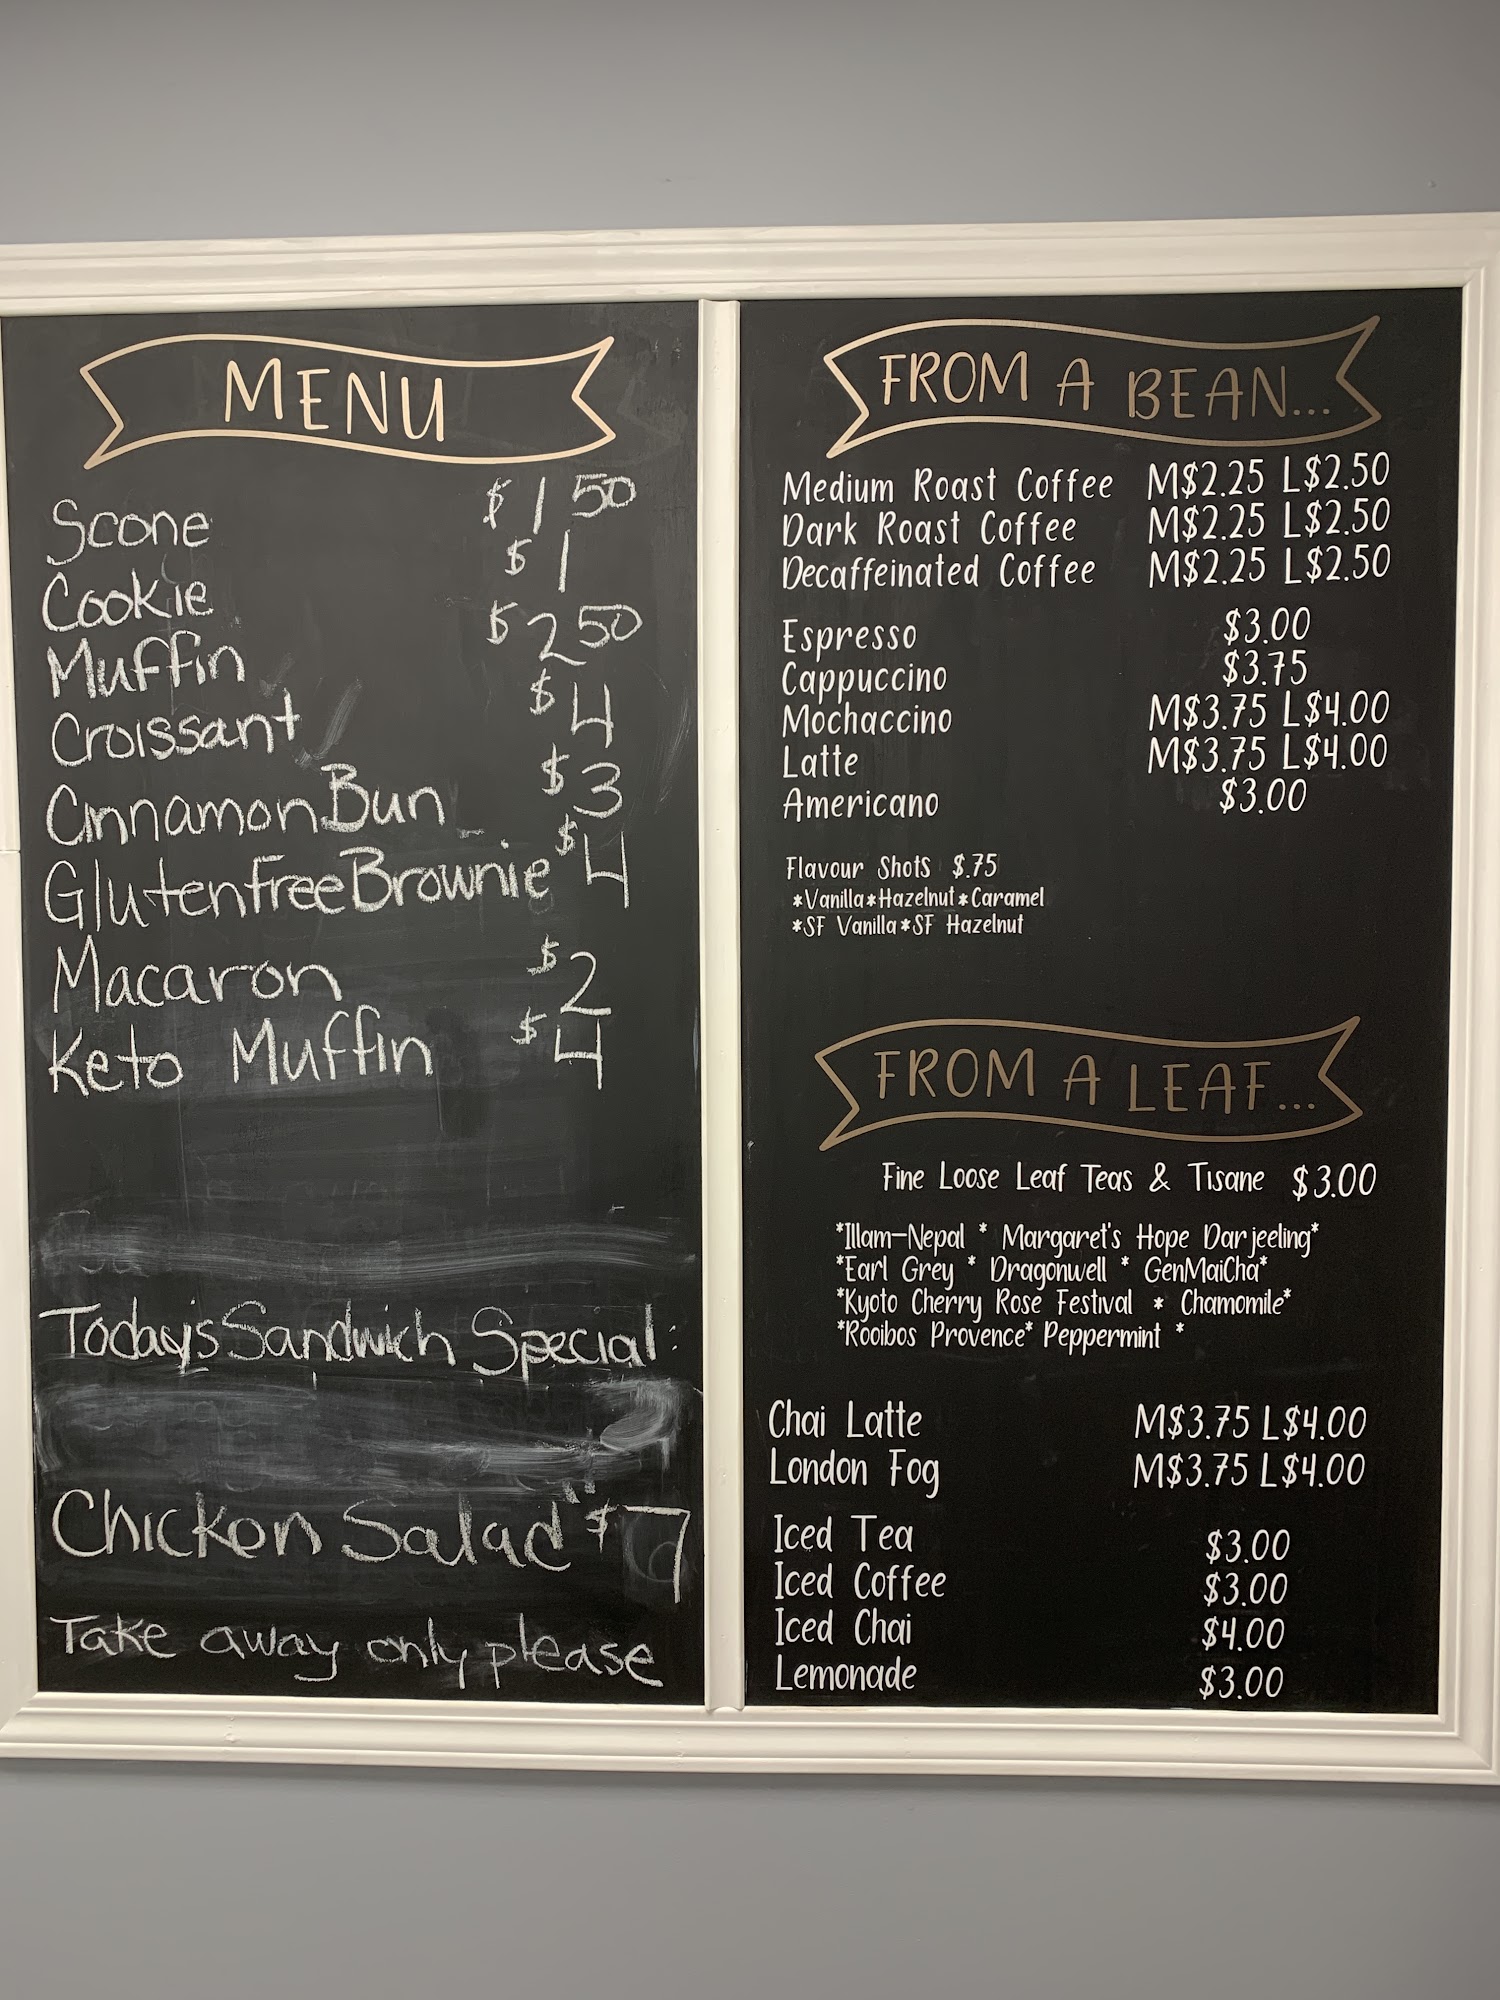 MENU
Scone $1 50
Cookie $1
Muffin $2 50
Croissant $4
Cinnamon Bun $3
Gluten Free Brownie $4
Macaron $2
Keto Muffin $4
Today's Sandwich Special:
Chicken Salad $7
Take away only please
FROM A BEAN...
Medium Roast Coffee M$2.25 L$2.50
Dark Roast Coffee M$2.25 L$2.50
Decaffeinated Coffee M$2.25 L$2.50
Espresso $3.00
Cappuccino $3.75
Mochaccino M$3.75 L$4.00
Latte M$3.75 L$4.00
Americano $3.00
Flavour Shots $.75
*Vanilla*Hazelnut*Caramel
*SF Vanilla*SF Hazelnut
FROM A LEAF...
Fine Loose Leaf Teas & Tisane $3.00
*Illam-Nepal * Margaret's Hope Darjeeling*
*Earl Grey * Dragonwell * GenMaiCha*
*Kyoto Cherry Rose Festival * Chamomile*
*Rooibos Provence* Peppermint *
Chai Latte M$3.75 L$4.00
London Fog M$3.75 L$4.00
Iced Tea $3.00
Iced Coffee $3.00
Iced Chai $4.00
Lemonade $3.00